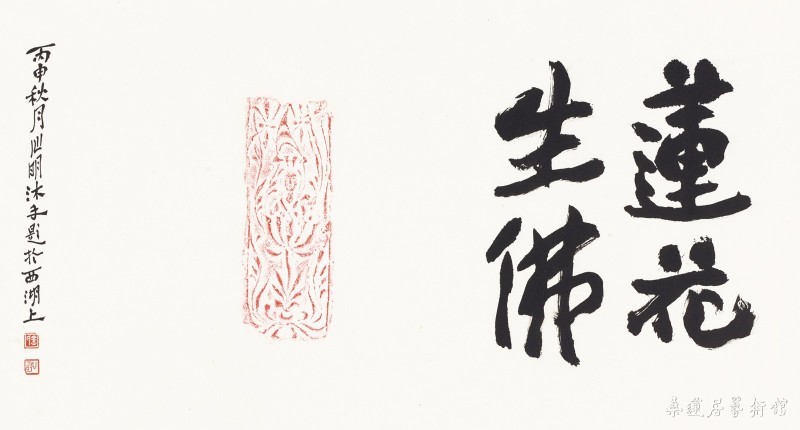 蓮花
生佛
丙申秋月明沐手題於西湖上
桑蓮居藝術館